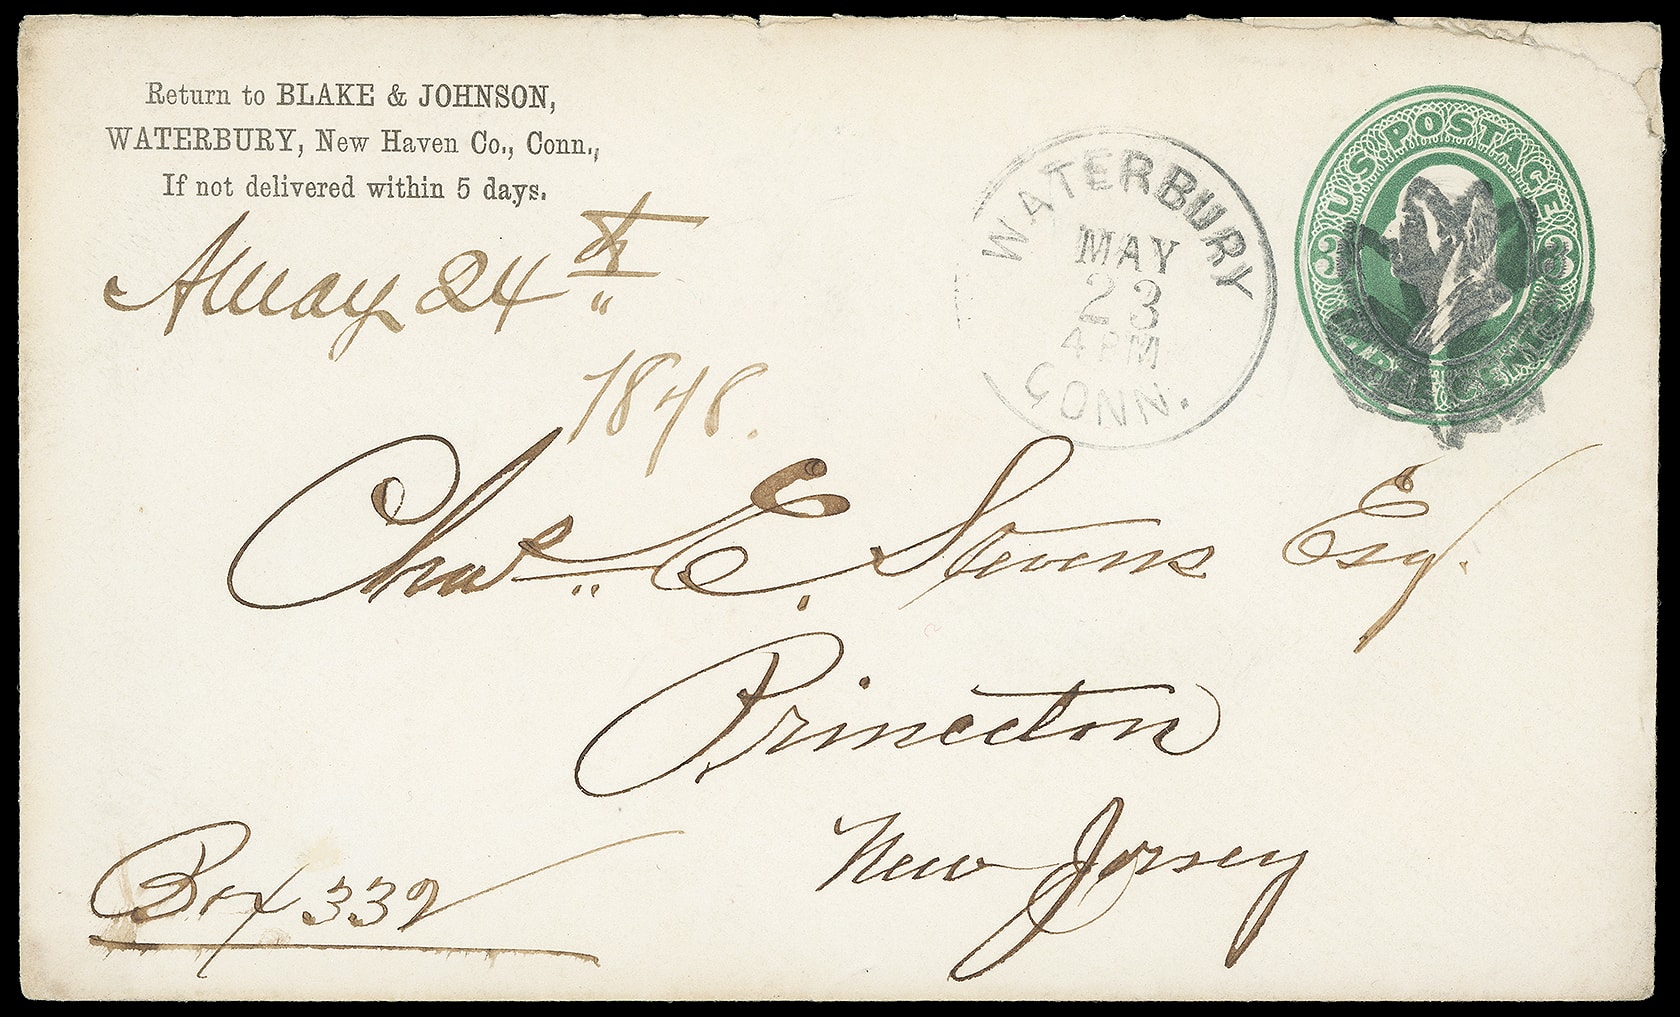 Return to BLAKE & JOHNSON,
WATERBURY, New Haven Co., Conn.,
If not delivered within 5 days.
May 24th
1878.
WATERBURY
MAY
23
4 PM
CONN.
U.S. POSTAGE
3 3
THREE CENTS
Chas. E. Stevens Esq.
Princeton
New Jersey
Box 332